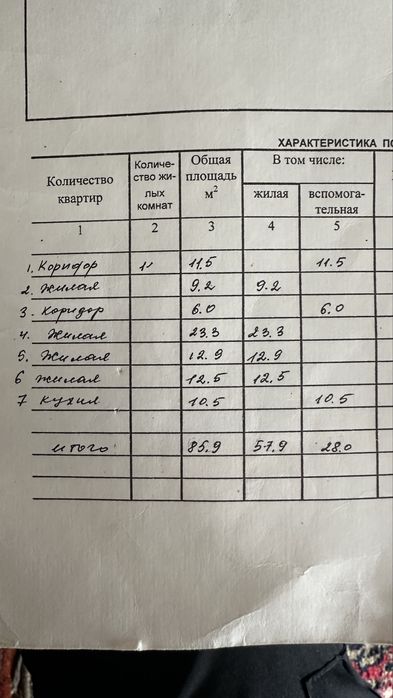 ХАРАКТЕРИСТИКА ПО
Количество квартир
Количе-
ство жи-
лых
комнат
Общая
площадь
м²
В том числе:
жилая
вспомога-
тельная
1 2 3 4 5
1. Коридор 1" 11,5 11.5
2. Жилая 9.2 9.2
3. Коридор 6.0 6.0
4. Жилая 23.3 23.3
5. Жилая 12.9 12.9
6 Жилая 12.5 12.5
7 Кухня 10.5 10.5
итого 85.9 57.9 28.0